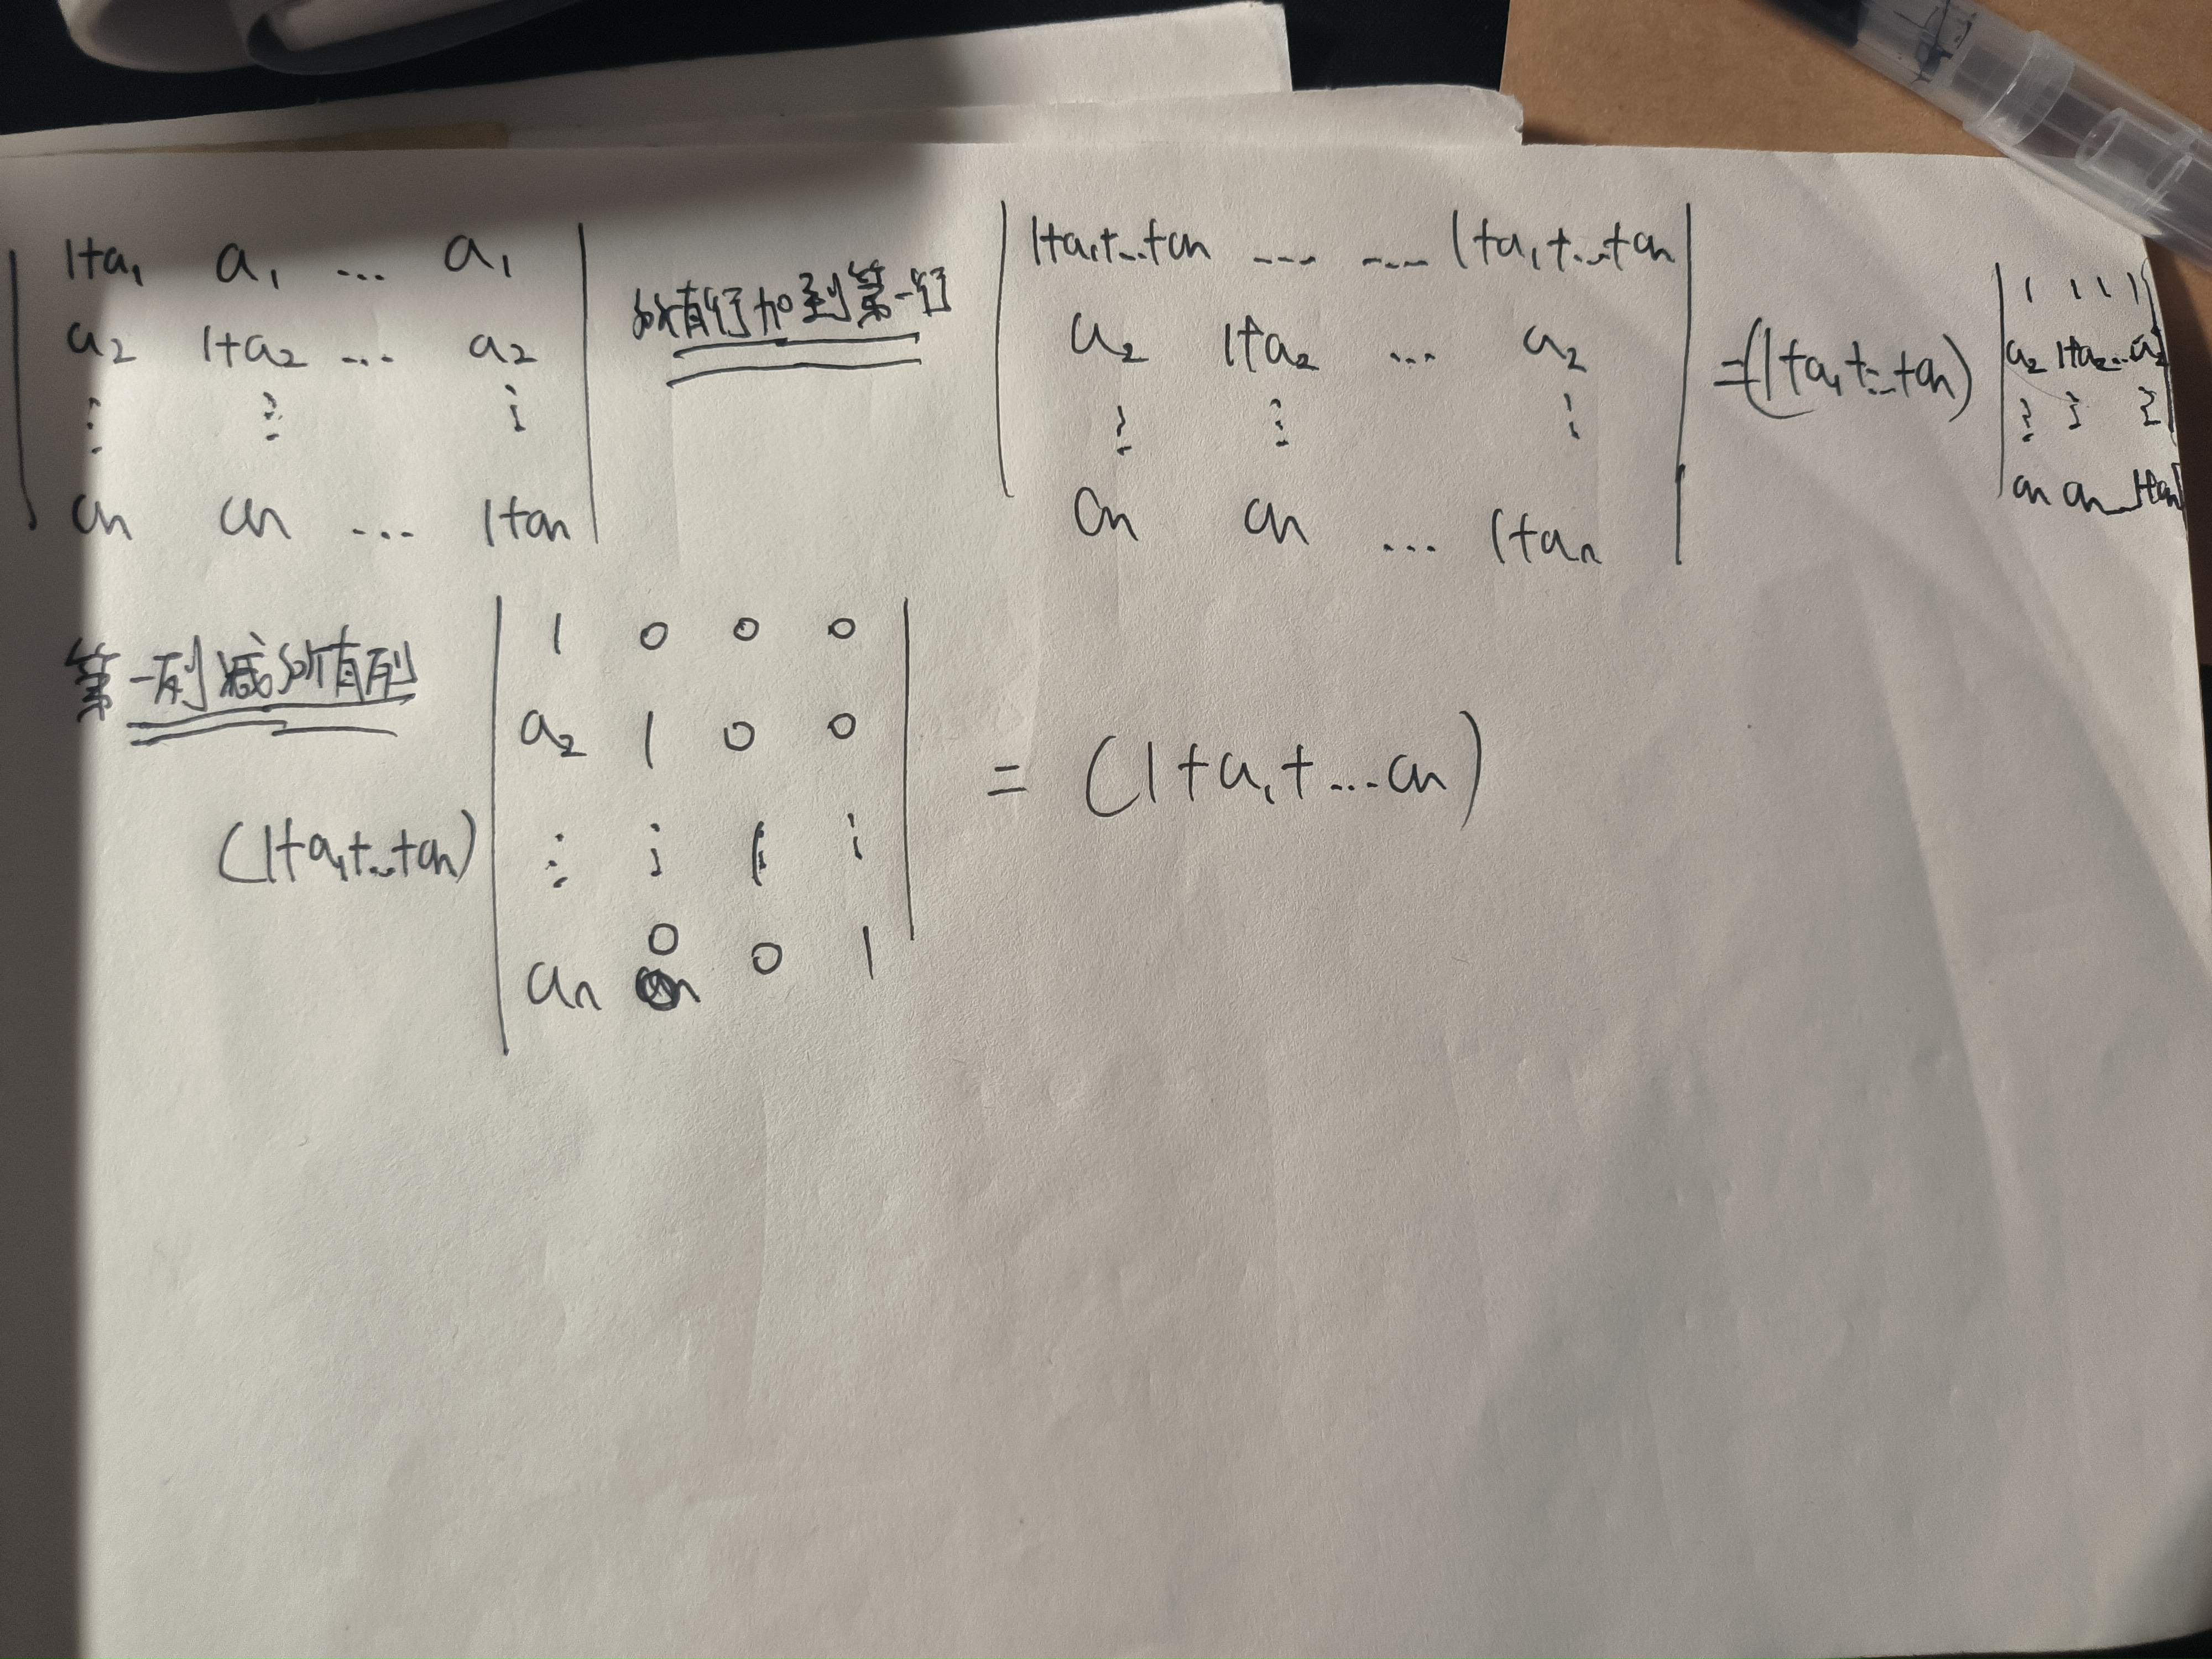 | 1+a₁ a₁ … a₁ |
| a₂ 1+a₂ … a₂ |
| ⋮ ⋮ ⋮ |
| an an … 1+an |
所有行加到第一行
| 1+a₁+…+an … … 1+a₁+…+an |
| a₂ 1+a₂ … a₂ |
| ⋮ ⋮ ⋮ |
| an an … 1+an |
=(1+a₁+…+an)
| 1 1 1 1 |
| a₂ 1+a₂ … a₂ |
| ⋮ ⋮ ⋮ |
| an an … 1+an |
第一列减所有列
(1+a₁+…+an)
| 1 0 0 0 |
| a₂ 1 0 0 |
| ⋮ ⋮ ⋮ ⋮ |
| an 0 0 1 |
= (1+a₁+…an)